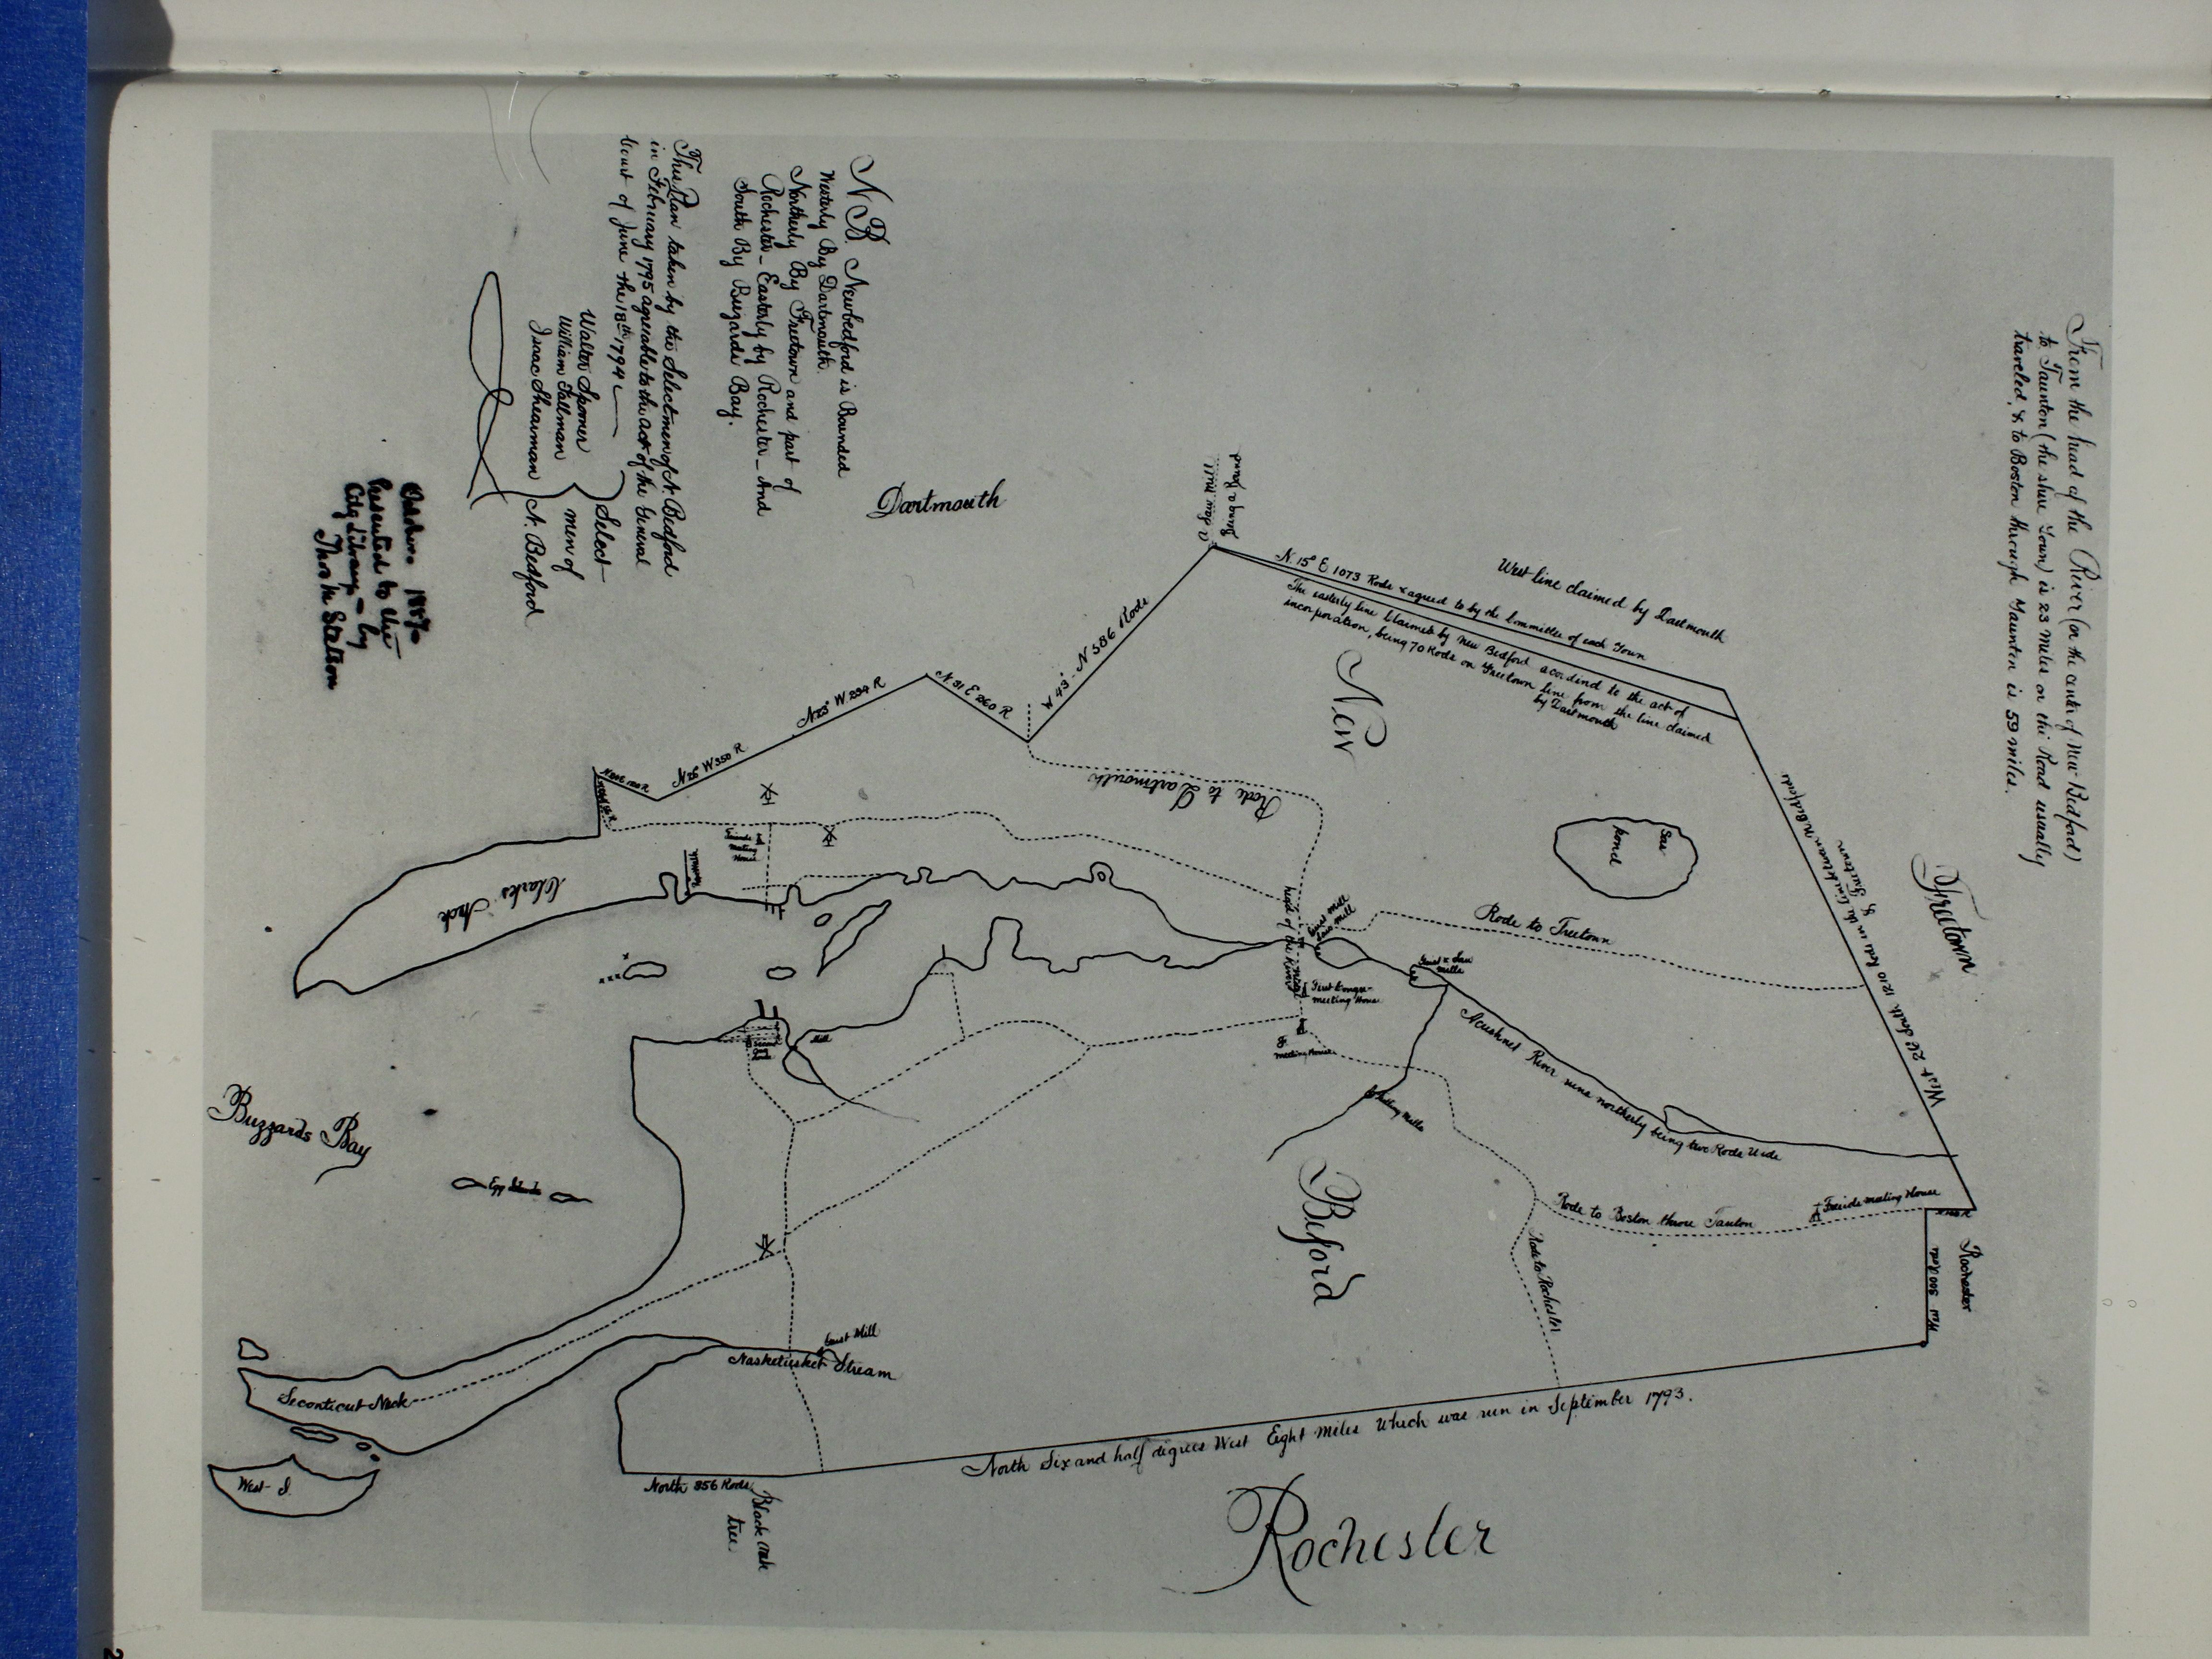 From the head of the River (or the center of New-Bedford)
to Taunton (the shire Town) is 23 miles on the Road usually
traveled, & to Boston through Taunton is 59 miles.
N.B. Newbedford is Bounded
Westerly By Dartmouth.
Northerly By Freetown and part of
Rochester _ Easterly by Rochester _ And
South By Buzards Bay.
This Plan taken by the Selectmen of N. Bedford
in February 1795 agreeable to the act of the General
Court of June the 18th 1794
Walter Sponer
William Tallman
Isaac Shearman
Select-
men of
N. Bedford
1887
Presented to the
City Library - by
Thos M. Stetson
Dartmouth
A Saw Mill
Being a Bound
West line claimed by Dartmouth
N. 15° E 1073 Rods & agreed to by the Committee of each Town
The easterly line Claimed by New Bedford according to the act of
incorporation, being 70 Rods on Freetown line from the line claimed
by Dartmouth
W 43° - N 386 Rods
N. 31 E 260 R
N 23° W 294 R
N 26° W 350 R
New
Beford
Rode to Dartmouth
Sas
pond
Freetown
Rode to Freetown
head of the River
Grist Mill
Saw Mill
First Congre-
meeting House
Fr
meeting House
Grist & Saw
Mills
Acushnet River runs northerly being two Rods Wide
Fulling Mills
Rode to Boston throu Tanton
Freinds meeting House
Rode to Rochester
Rochester
West 300 Rods
Clarks Neck
Mill
Buzzards Bay
Egg Islands
Grist Mill
Nasketucket Stream
Seconticut Neck
West I.
North 356 Rods
Black oak
tree.
North Six and half degrees West Eight Miles Which was run in September 1793.
Rochester